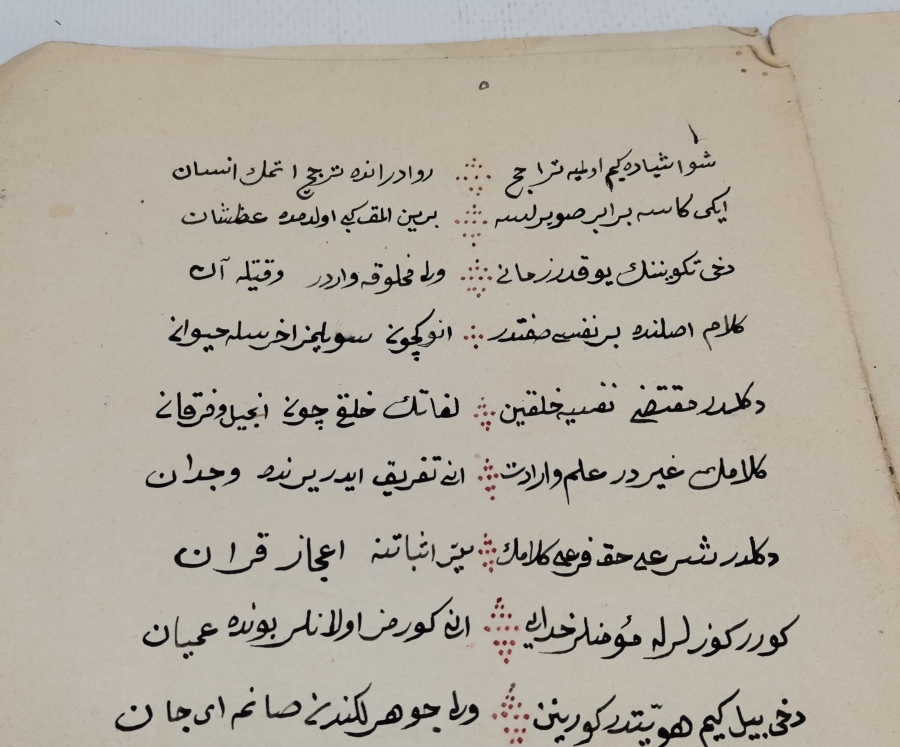 شو اشیاده کیم اولمیه تراجح روادر انده ترجح اتمك انسان
ایکی کاسه برابر صویر لسه برین المق کبی اولدمده عطشان
دخی تکوینك یوقدر زمانی وله مخلوقه واردر وقتیله آن
کلام اصلنده بر نفسی صفتدر انوکچون سویلمز اخرسله حیوانی
دکلدر مقتضی نفسیه خلقین لغاتك خلقی چون انجیل و فرقانی
کلامك غیردر علم و ارادت انی تفریق ایدر یرنده وجدان
دکلدر شرعی حق فرعی کلامك یتر اثباتنه اعجاز قران
کورر کوزلرله مؤمنلر خدایی انی کورمز اولانلر بونده عمیان
دخی بیل کیم هویتدر کورینن وله جوهر لکندنی صانم ای جان